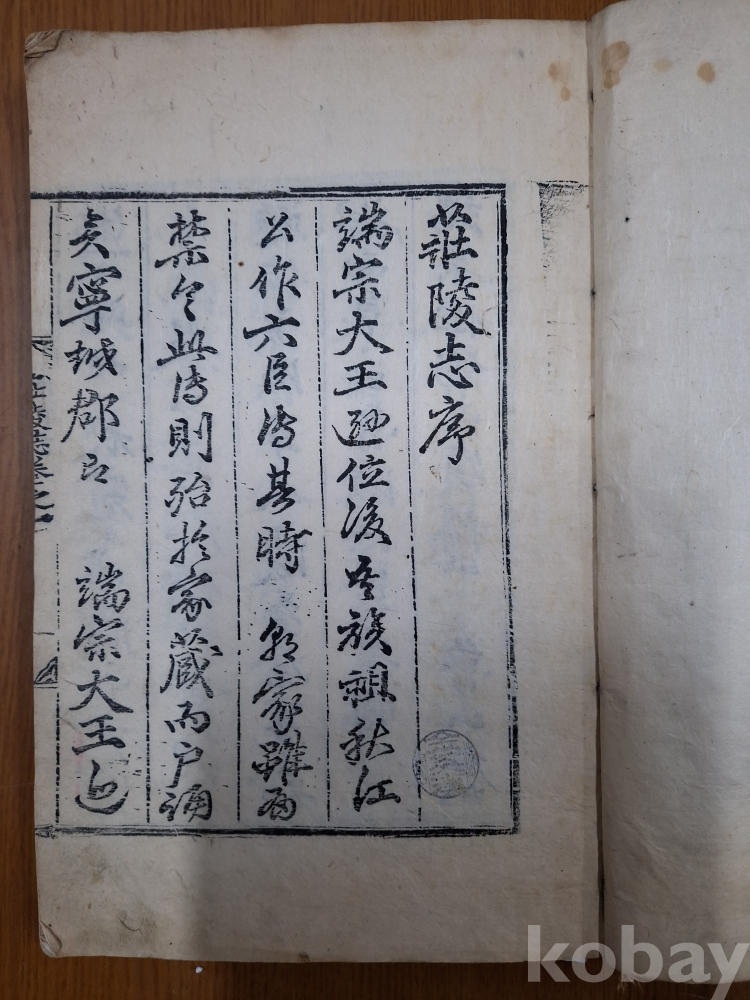 莊陵志序
端宗大王遜位後吾族祖秋江
公作六臣傳其時 朝家雖有
禁令此傳則殆於家藏而戶誦
矣寧越郡即 端宗大王遜
莊陵誌卷之一
kobay